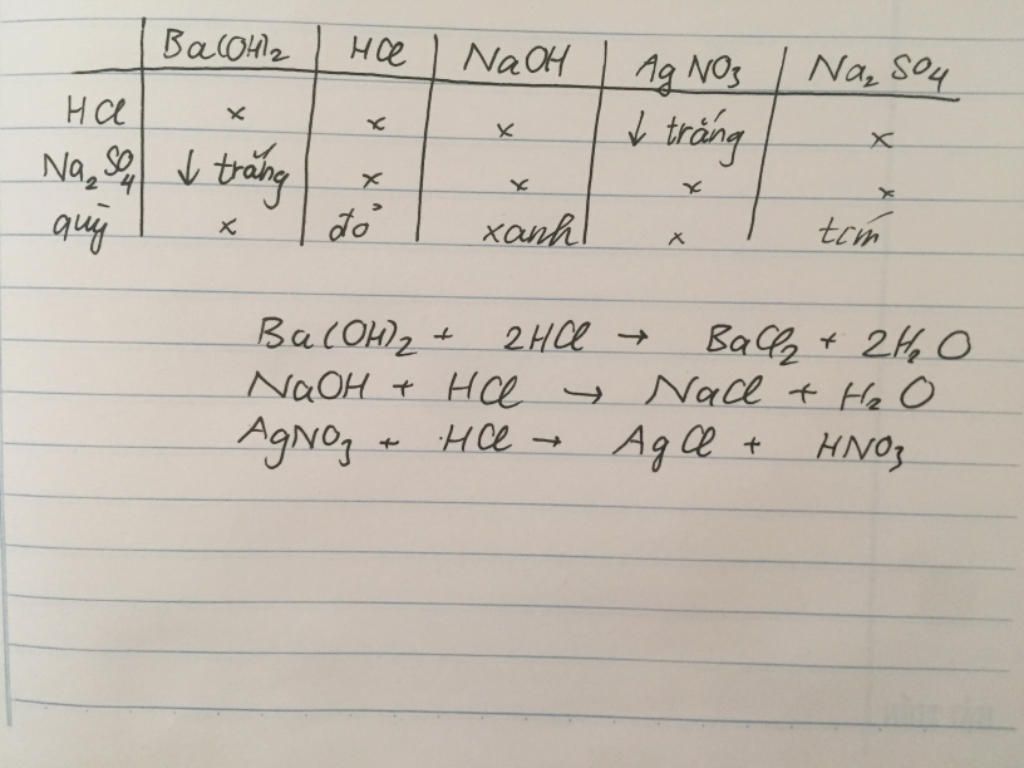 Ba(OH)2 HCl NaOH AgNO3 Na2SO4
HCl x x x ↓ trắng x
Na2SO4 ↓ trắng x x x x
quỳ x đỏ xanh x tím
Ba(OH)2 + 2HCl → BaCl2 + 2H2O
NaOH + HCl → NaCl + H2O
AgNO3 + HCl → AgCl + HNO3